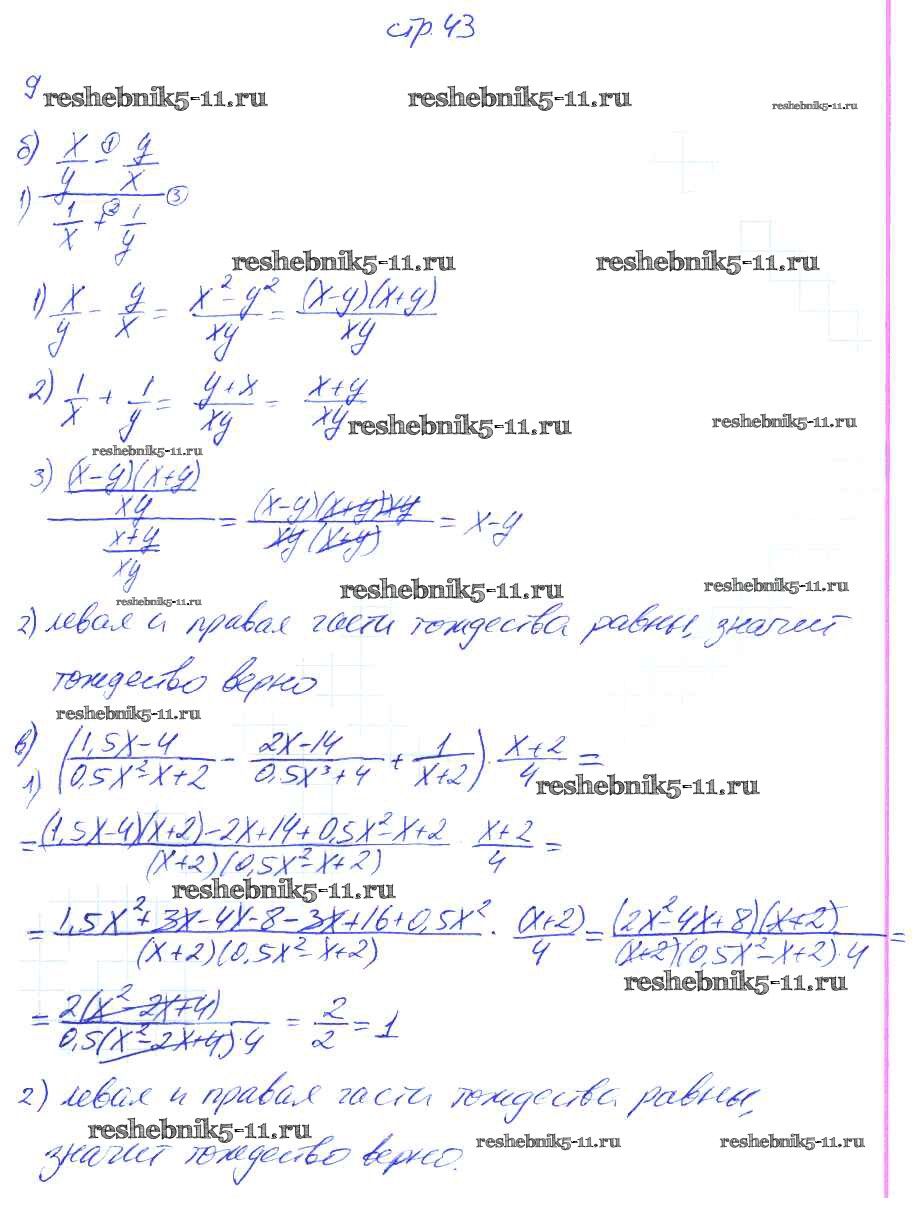 стр. 43
9
reshebnik5-11.ru reshebnik5-11.ru reshebnik5-11.ru
б) x/y - y/x ①
1) ―――― ③
1/x + 1/y ②
reshebnik5-11.ru reshebnik5-11.ru
1) x/y - y/x = (x² - y²)/xy = (x-y)(x+y)/xy
2) 1/x + 1/y = (y+x)/xy = (x+y)/xy
reshebnik5-11.ru reshebnik5-11.ru
reshebnik5-11.ru
3) ((x-y)(x+y)/xy)/((x+y)/xy) = (x-y)(x+y)xy/(xy(x+y)) = x-y
reshebnik5-11.ru reshebnik5-11.ru reshebnik5-11.ru
2) левая и правая части тождества равны, значит
тождество верно
reshebnik5-11.ru
в)
1) ((1,5x-4)/(0,5x²-x+2) - (2x-14)/(0,5x³+4) + 1/(x+2)) · (x+2)/4 =
reshebnik5-11.ru
= ((1,5x-4)(x+2)-2x+14+0,5x²-x+2)/((x+2)(0,5x²-x+2)) · (x+2)/4 =
reshebnik5-11.ru
= (1,5x²+3x-4x-8-3x+16+0,5x²)/((x+2)(0,5x²-x+2)) · (x+2)/4 = (2x²-4x+8)(x+2)/((x+2)(0,5x²-x+2)·4) =
reshebnik5-11.ru
= 2(x²-2x+4)/(0,5(x²-2x+4)·4) = 2/2 = 1
2) левая и правая части тождества равны,
reshebnik5-11.ru reshebnik5-11.ru reshebnik5-11.ru
значит тождество верно.